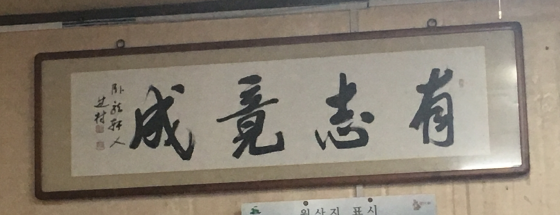 有志竟成
卧龍軒人
원산지 표시